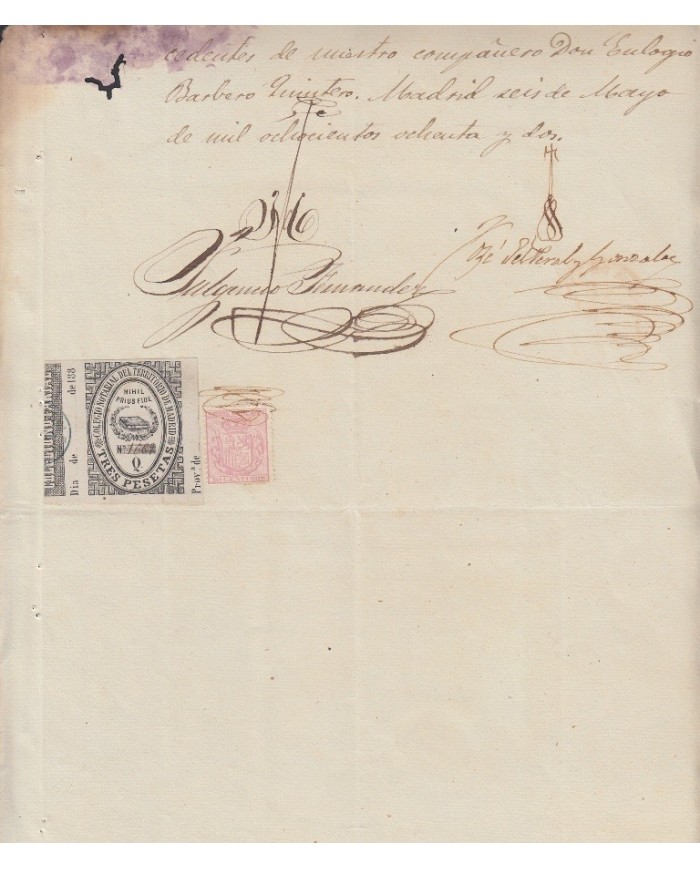 cedentes de nuestro compañero Don Eulogio
Barbero Quintero. Madrid seis de Mayo
de mil ochocientos ochenta y dos.
Fulgencio Fernandez
José del Peral y Gonzalez
COLEGIO NOTARIAL DEL TERRITORIO DE MADRID
NIHIL
PRIUS FIDE
Nº
Q
TRES PESETAS
Dia de de 188
Provª de